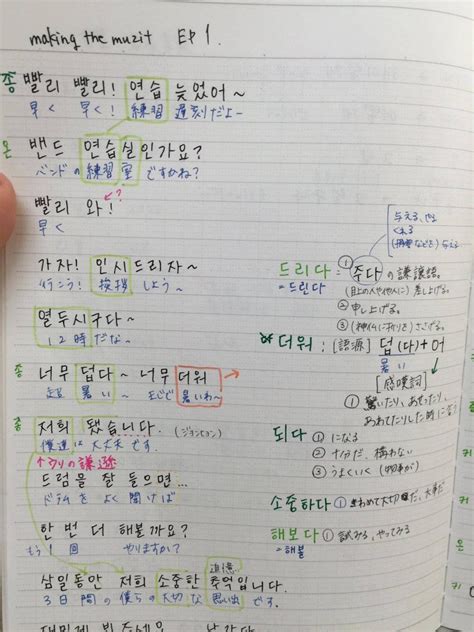 making the muzit EP 1.
종 빨리 빨리! 연습 늦었어~
早く 早く! 練習 遅刻だよー
온 밴드 연습실인가요?
バンドの練習室ですかね?
빨리 와! ?
早く
가자! 인사드리자~
行こう! 挨拶しよう~
열두시구다~
12時だな~
종 너무 덥다~ 너무 더워
暑い~ 暑いわ~
종 저희 됐습니다. (ジョンヒョン)
僕達は大丈夫です。
↑우리の謙遜
드럼을 잘 들으면...
ドラムをよく聞けば
한 번 더 해볼까요?
もう1回 やりますか?
追憶
삼일동안 저희 소중한 추억입니다.
3日間の僕らの大切な思い出です。
与える、やる
くれる
与える
드리다=①주다の謙譲語。
=드린다 (目上の人や他人に)差し上げる。
②申し上げる。
③(神仏に祈りを)ささげる。
*더워: [語源] 덥(다)+어
暑い
[感嘆詞]
①驚いたり、あせったり、
あわれてたりした時に
되다 ①になる
②十分だ、構わない
③うまくいく(物事が)
소중하다 ①きわめて大切だ、大事だ
해보다 ①試みる、やってみる
=해볼